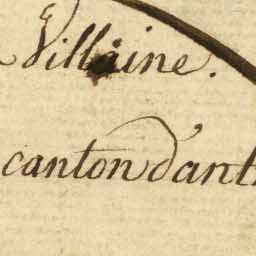 Villaine.
canton d'ant